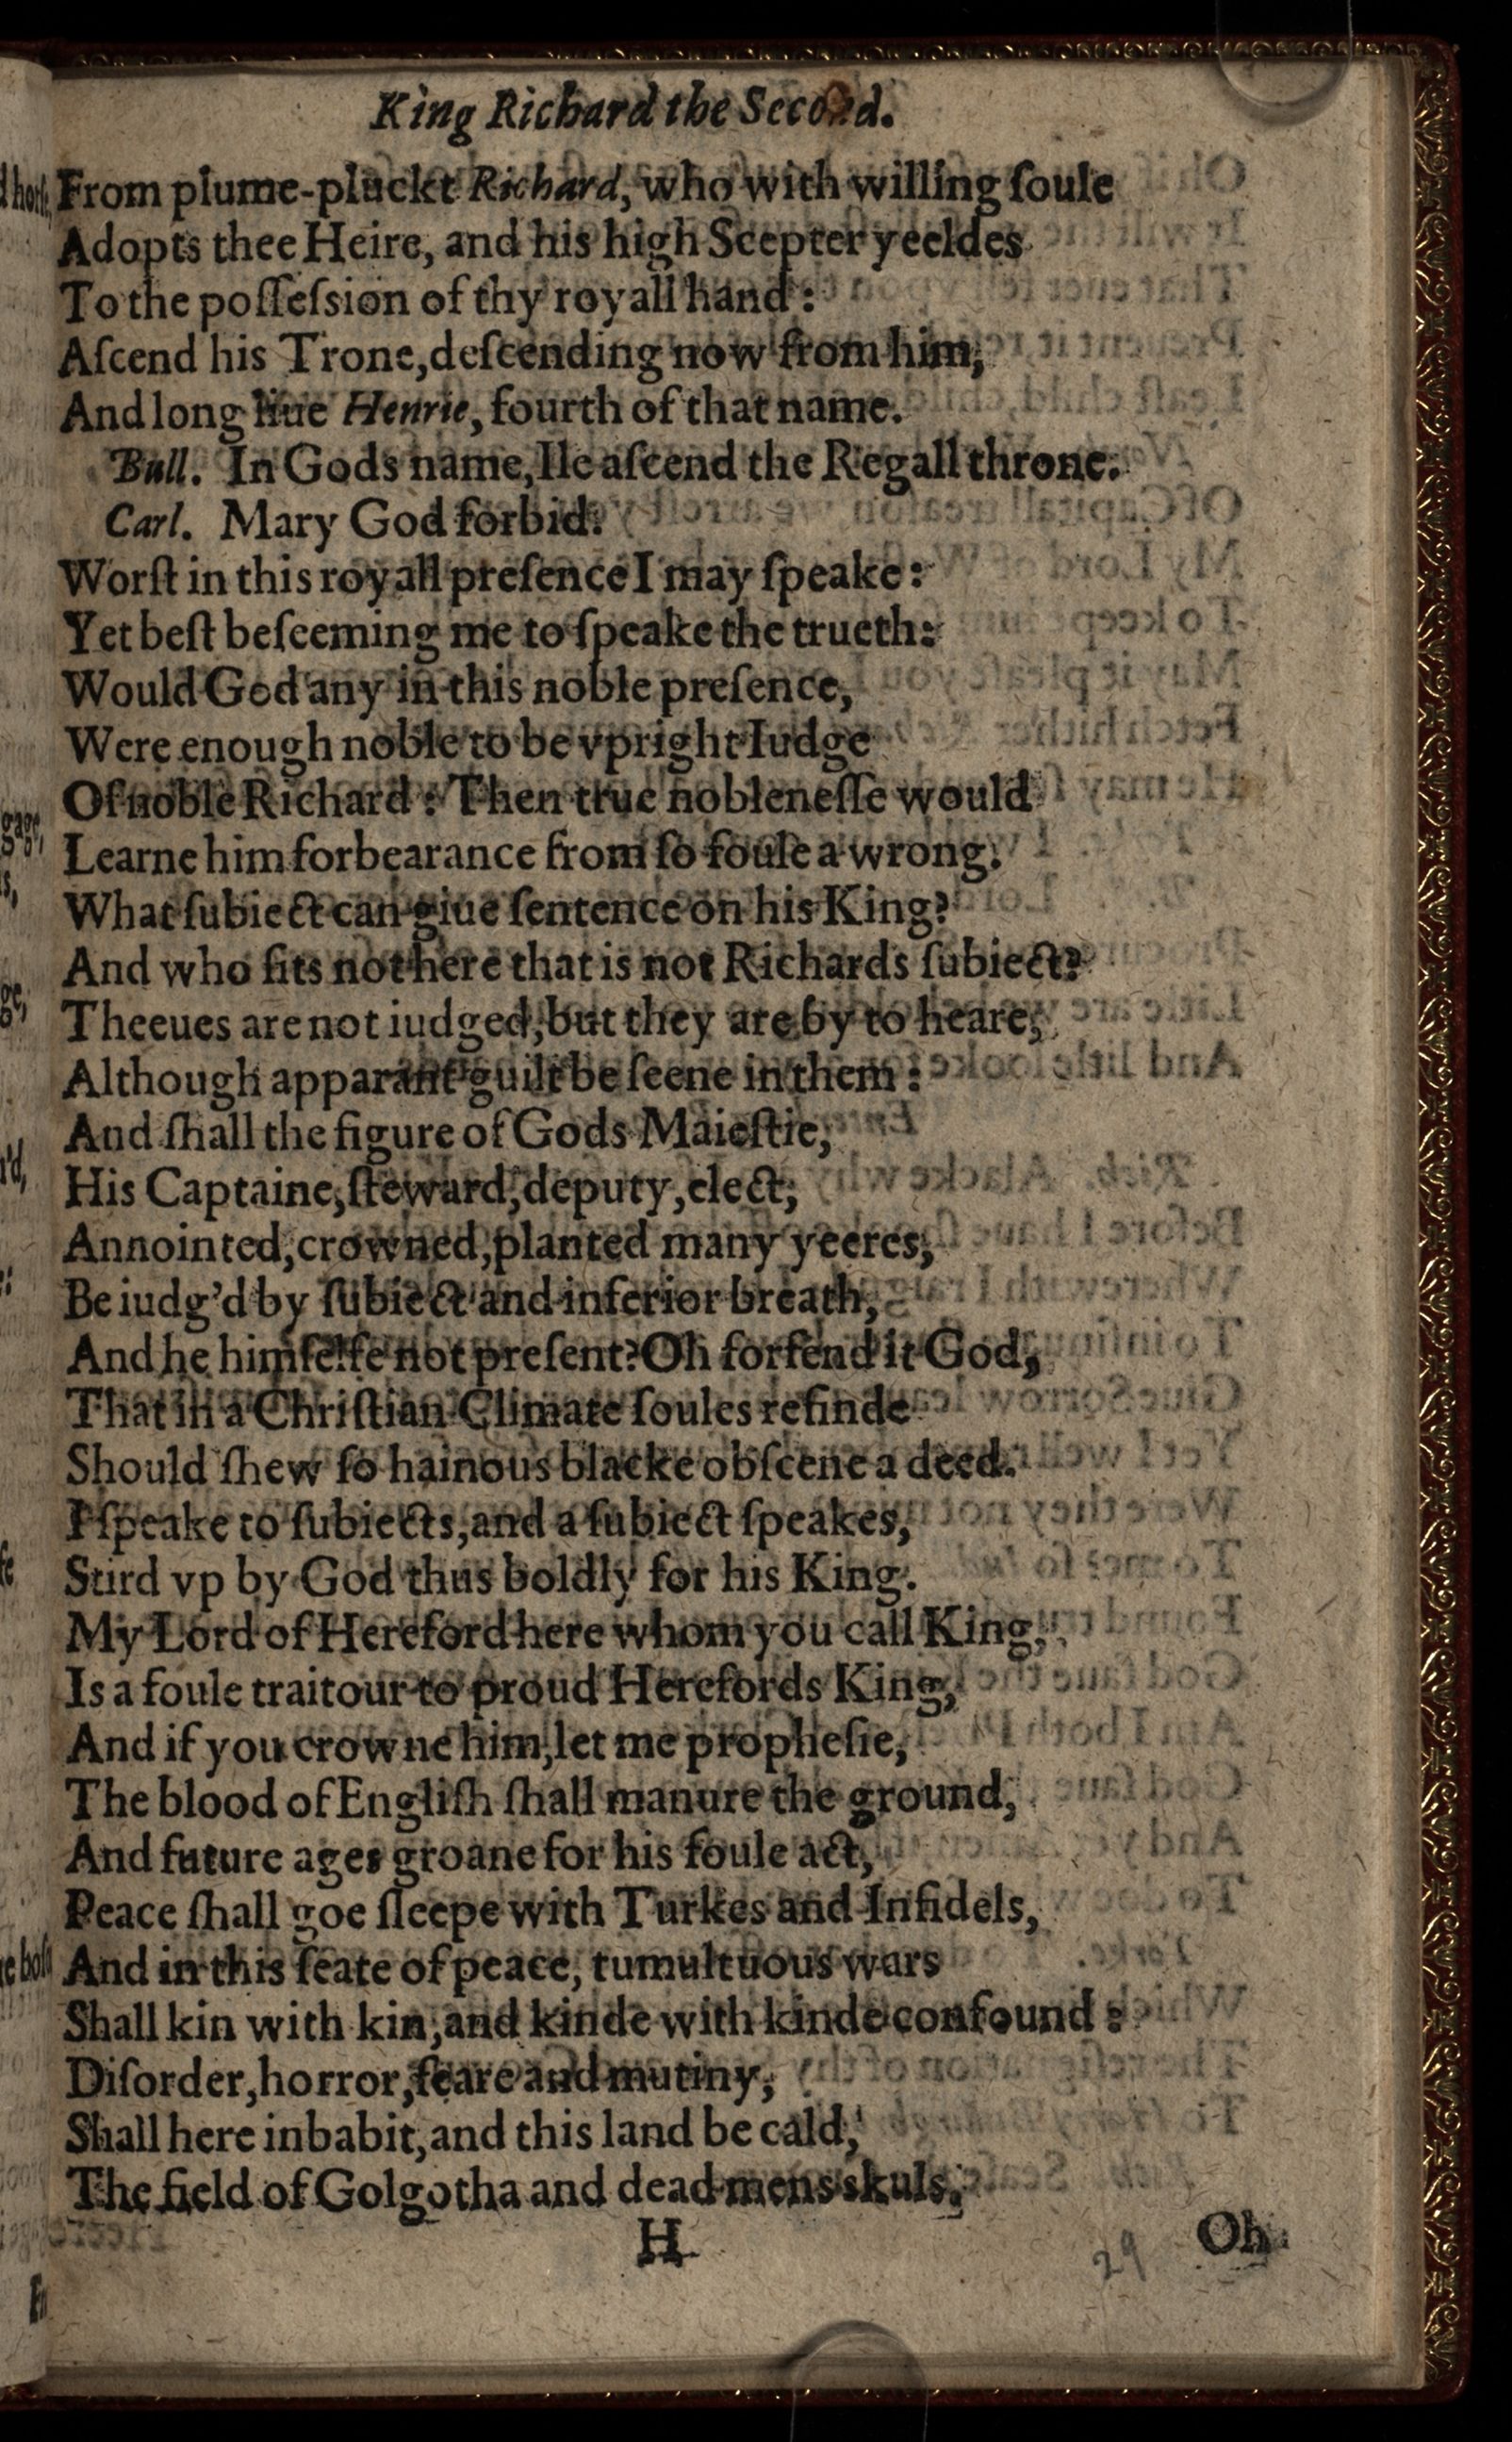 King Richard the Second.
From plume-pluckt Richard, who with willing ſoule
Adopts thee Heire, and his high Scepter yeeldes
To the poſſeſsion of thy royall hand :
Aſcend his Trone,deſcending now from him,
And long liue Henrie, fourth of that name.
Bull. In Gods name,Ile aſcend the Regall throne.
Carl. Mary God forbid.
Worſt in this royall preſence I may ſpeake :
Yet beſt beſeeming me to ſpeake the trueth:
Would God any in this noble preſence,
Were enough noble to be vpright Iudge
Of noble Richard : Then true nobleneſſe would
Learne him forbearance from ſo foule a wrong.
What ſubiect can giue ſentence on his King?
And who ſits not here that is not Richards ſubiect?
Theeues are not iudged,but they are by to heare,
Although apparant guilt be ſeene in them :
And ſhall the figure of Gods Maieſtie,
His Captaine,ſteward,deputy,elect,
Annointed,crowned,planted many yeeres,
Be iudg'd by ſubiect and inferior breath,
And he himſelfe not preſent?Oh forfend it God,
That in a Chriſtian Climate ſoules refinde
Should ſhew ſo hainous blacke obſcene a deed.
I ſpeake to ſubiects,and a ſubiect ſpeakes,
Stird vp by God thus boldly for his King.
My Lord of Hereford here whom you call King,
Is a foule traitour to proud Herefords King,
And if you crowne him,let me propheſie,
The blood of Engliſh ſhall manure the ground,
And future ages groane for his foule act,
Peace ſhall goe ſleepe with Turkes and Infidels,
And in this ſeate of peace, tumultuous wars
Shall kin with kin,and kinde with kinde confound :
Diſorder,horror,feare and mutiny,
Shall here inbabit,and this land be cald,
The field of Golgotha and dead mens skuls.
H
Oh
29